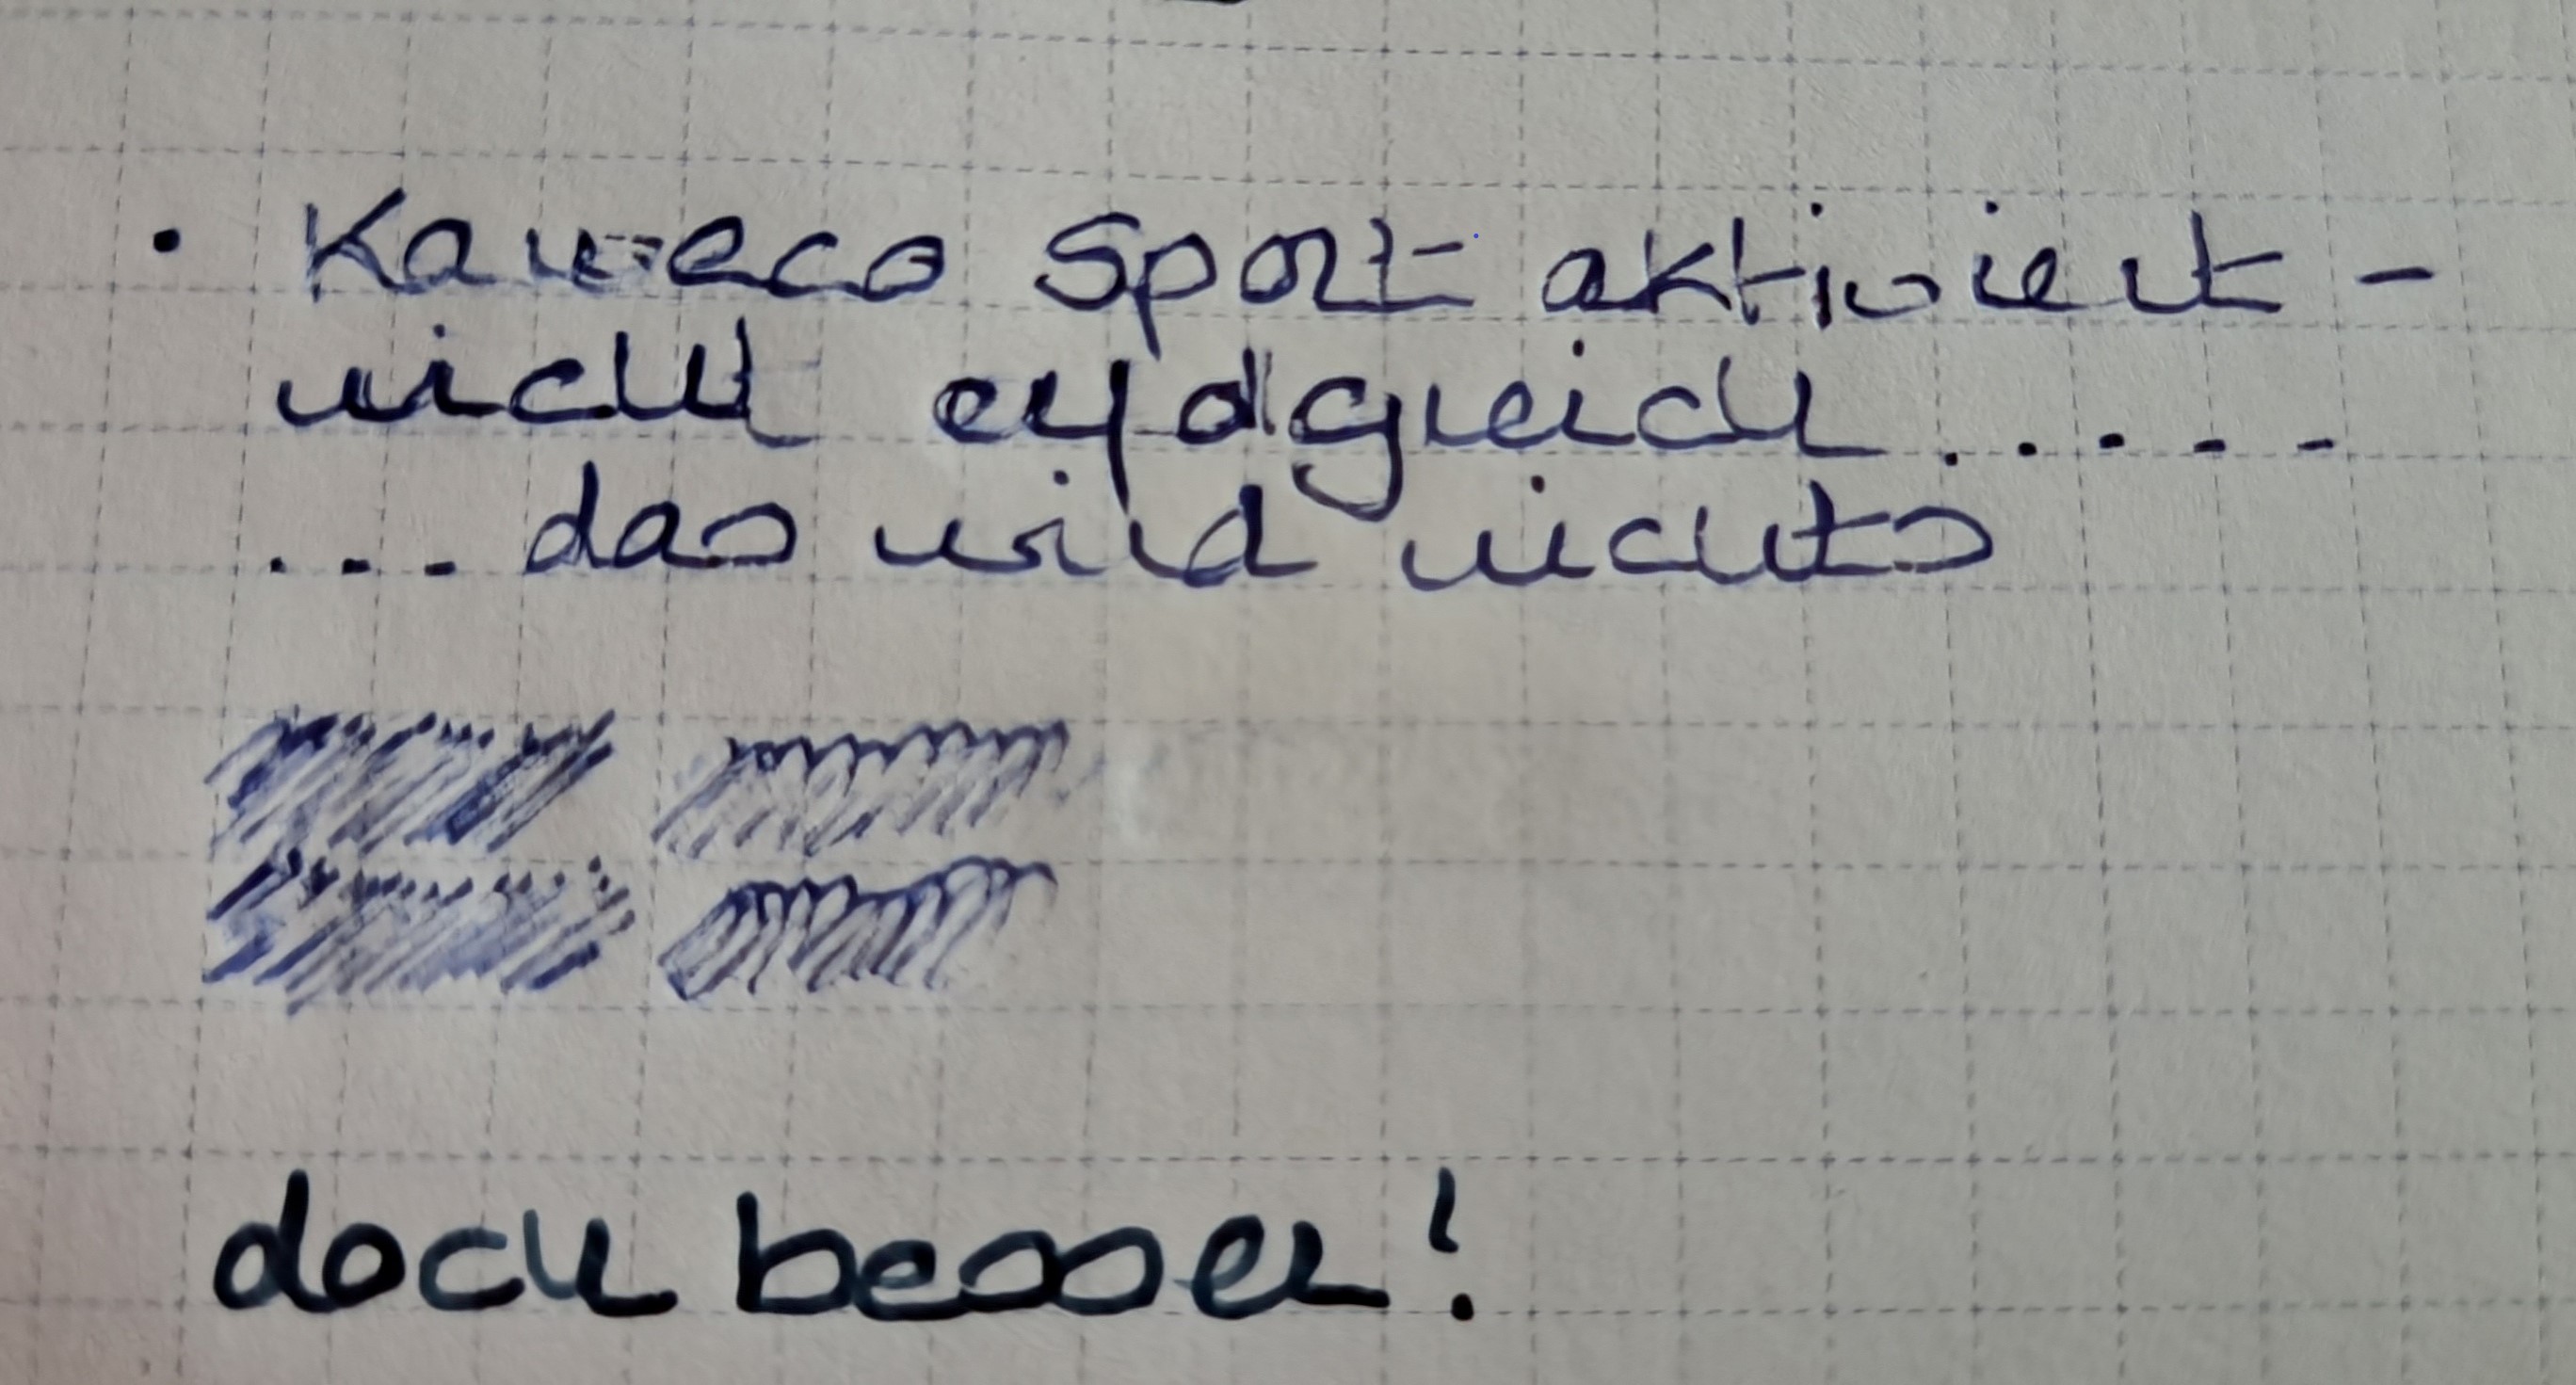 · Kaweco Sport aktiviert -
nicht erfolgreich . . . . .
. . . das wird nichts
doch besser!